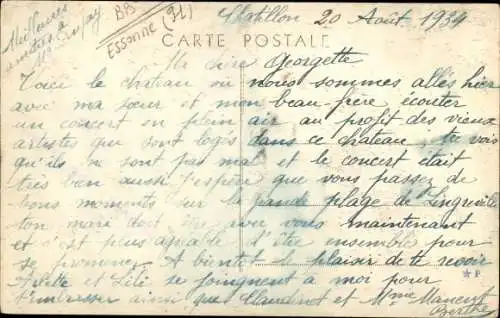 Meilleures
amitiés à
Mr
BB
Essonne (91)
Chatillon 20 Août 1939
CARTE POSTALE
Ma chère Georgette
Voici le chateau où nous sommes allés hier
avec ma sœur et mon beau-frère écouter
un concert en plein air au profit des vieux
artistes qui sont logés dans ce chateau, tu vois
qu'ils ne sont pas mal et le concert était
très bien aussi j'espère que vous passez de
bons moments sur la grande plage de Lingreville
ton mari doit être avec vous maintenant
et c'est plus agréable d'être ensembles pour
se promener A bientôt le plaisir de te revoir
Arlette et Lili se joignent à moi pour
t'embrasser ainsi que et Mme
Berthe